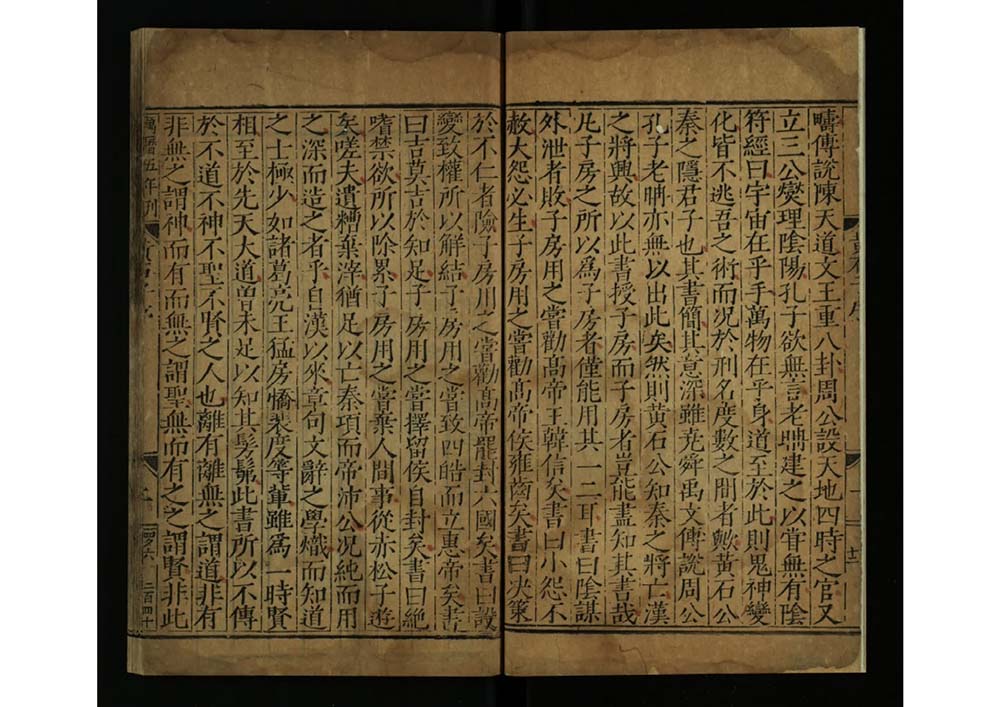 疇傳說陳天道文王重八卦周公設天地四時之官又
立三公爕理陰陽孔子欲無言老聃建之以甞無有陰
符經曰宇宙在乎手萬物在乎身道至於此則鬼神變
化皆不逃吾之術而况於刑名度數之間者歟黃石公
秦之隱君子也其書簡其意深雖尭舜禹文傳說周公
孔子老聃亦無以出此矣然則黃石公知秦之將亡漢
之將興故以此書授子房而子房者豈能盡知其書哉
凢子房之所以爲子房者僅能用其一二耳書曰陰謀
外泄者敗子房用之嘗勸髙帝王韓信矣書曰小怨不
赦大怨必生子房用之嘗勸髙帝侯雍齒矣書曰决䇿
於不仁者險子房用之嘗勸髙帝罷封六國矣書曰設
變致權所以解結子房用之嘗致四皓而立惠帝矣書
曰吉莫吉於知足子房用之嘗擇留侯自封矣書曰絶
嗜禁欲所以除累子房用之嘗棄人間事從赤松子遊
矣嗟夫遺糟棄滓猶足以亡秦項而帝沛公况純而用
之深而造之者乎自漢以來章句文辭之學熾而知道
之士極少如諸葛亮王猛房喬裴度等輩雖爲一時賢
相至於先天大道曾未足以知其髣髴此書所以不傳
於不道不神不聖不賢之人也離有離無之謂道非有
非無之謂神而有而無之謂聖無而有之之謂賢非此
萬曆五年刊
二百四十